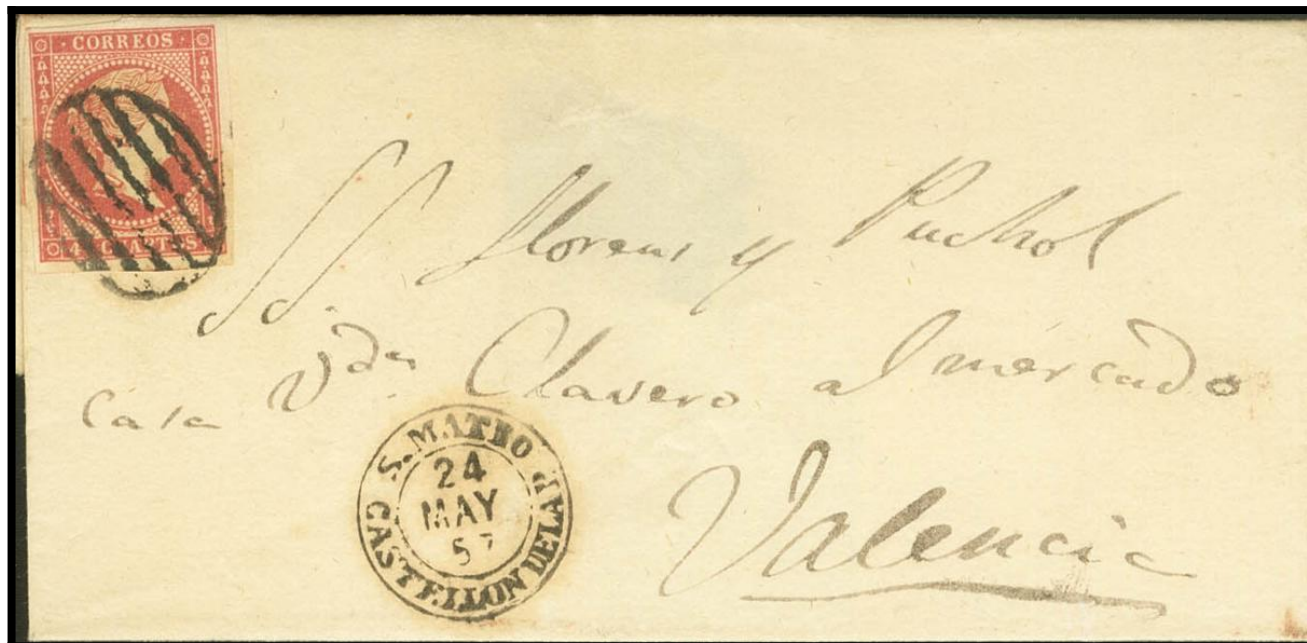 CORREOS
4 CUARTOS
SS. Llorens y Puchol
Casa Vda. Clavero al mercado
S. MATEO
24
MAY
57
CASTELLON DE LA P.
Valencia